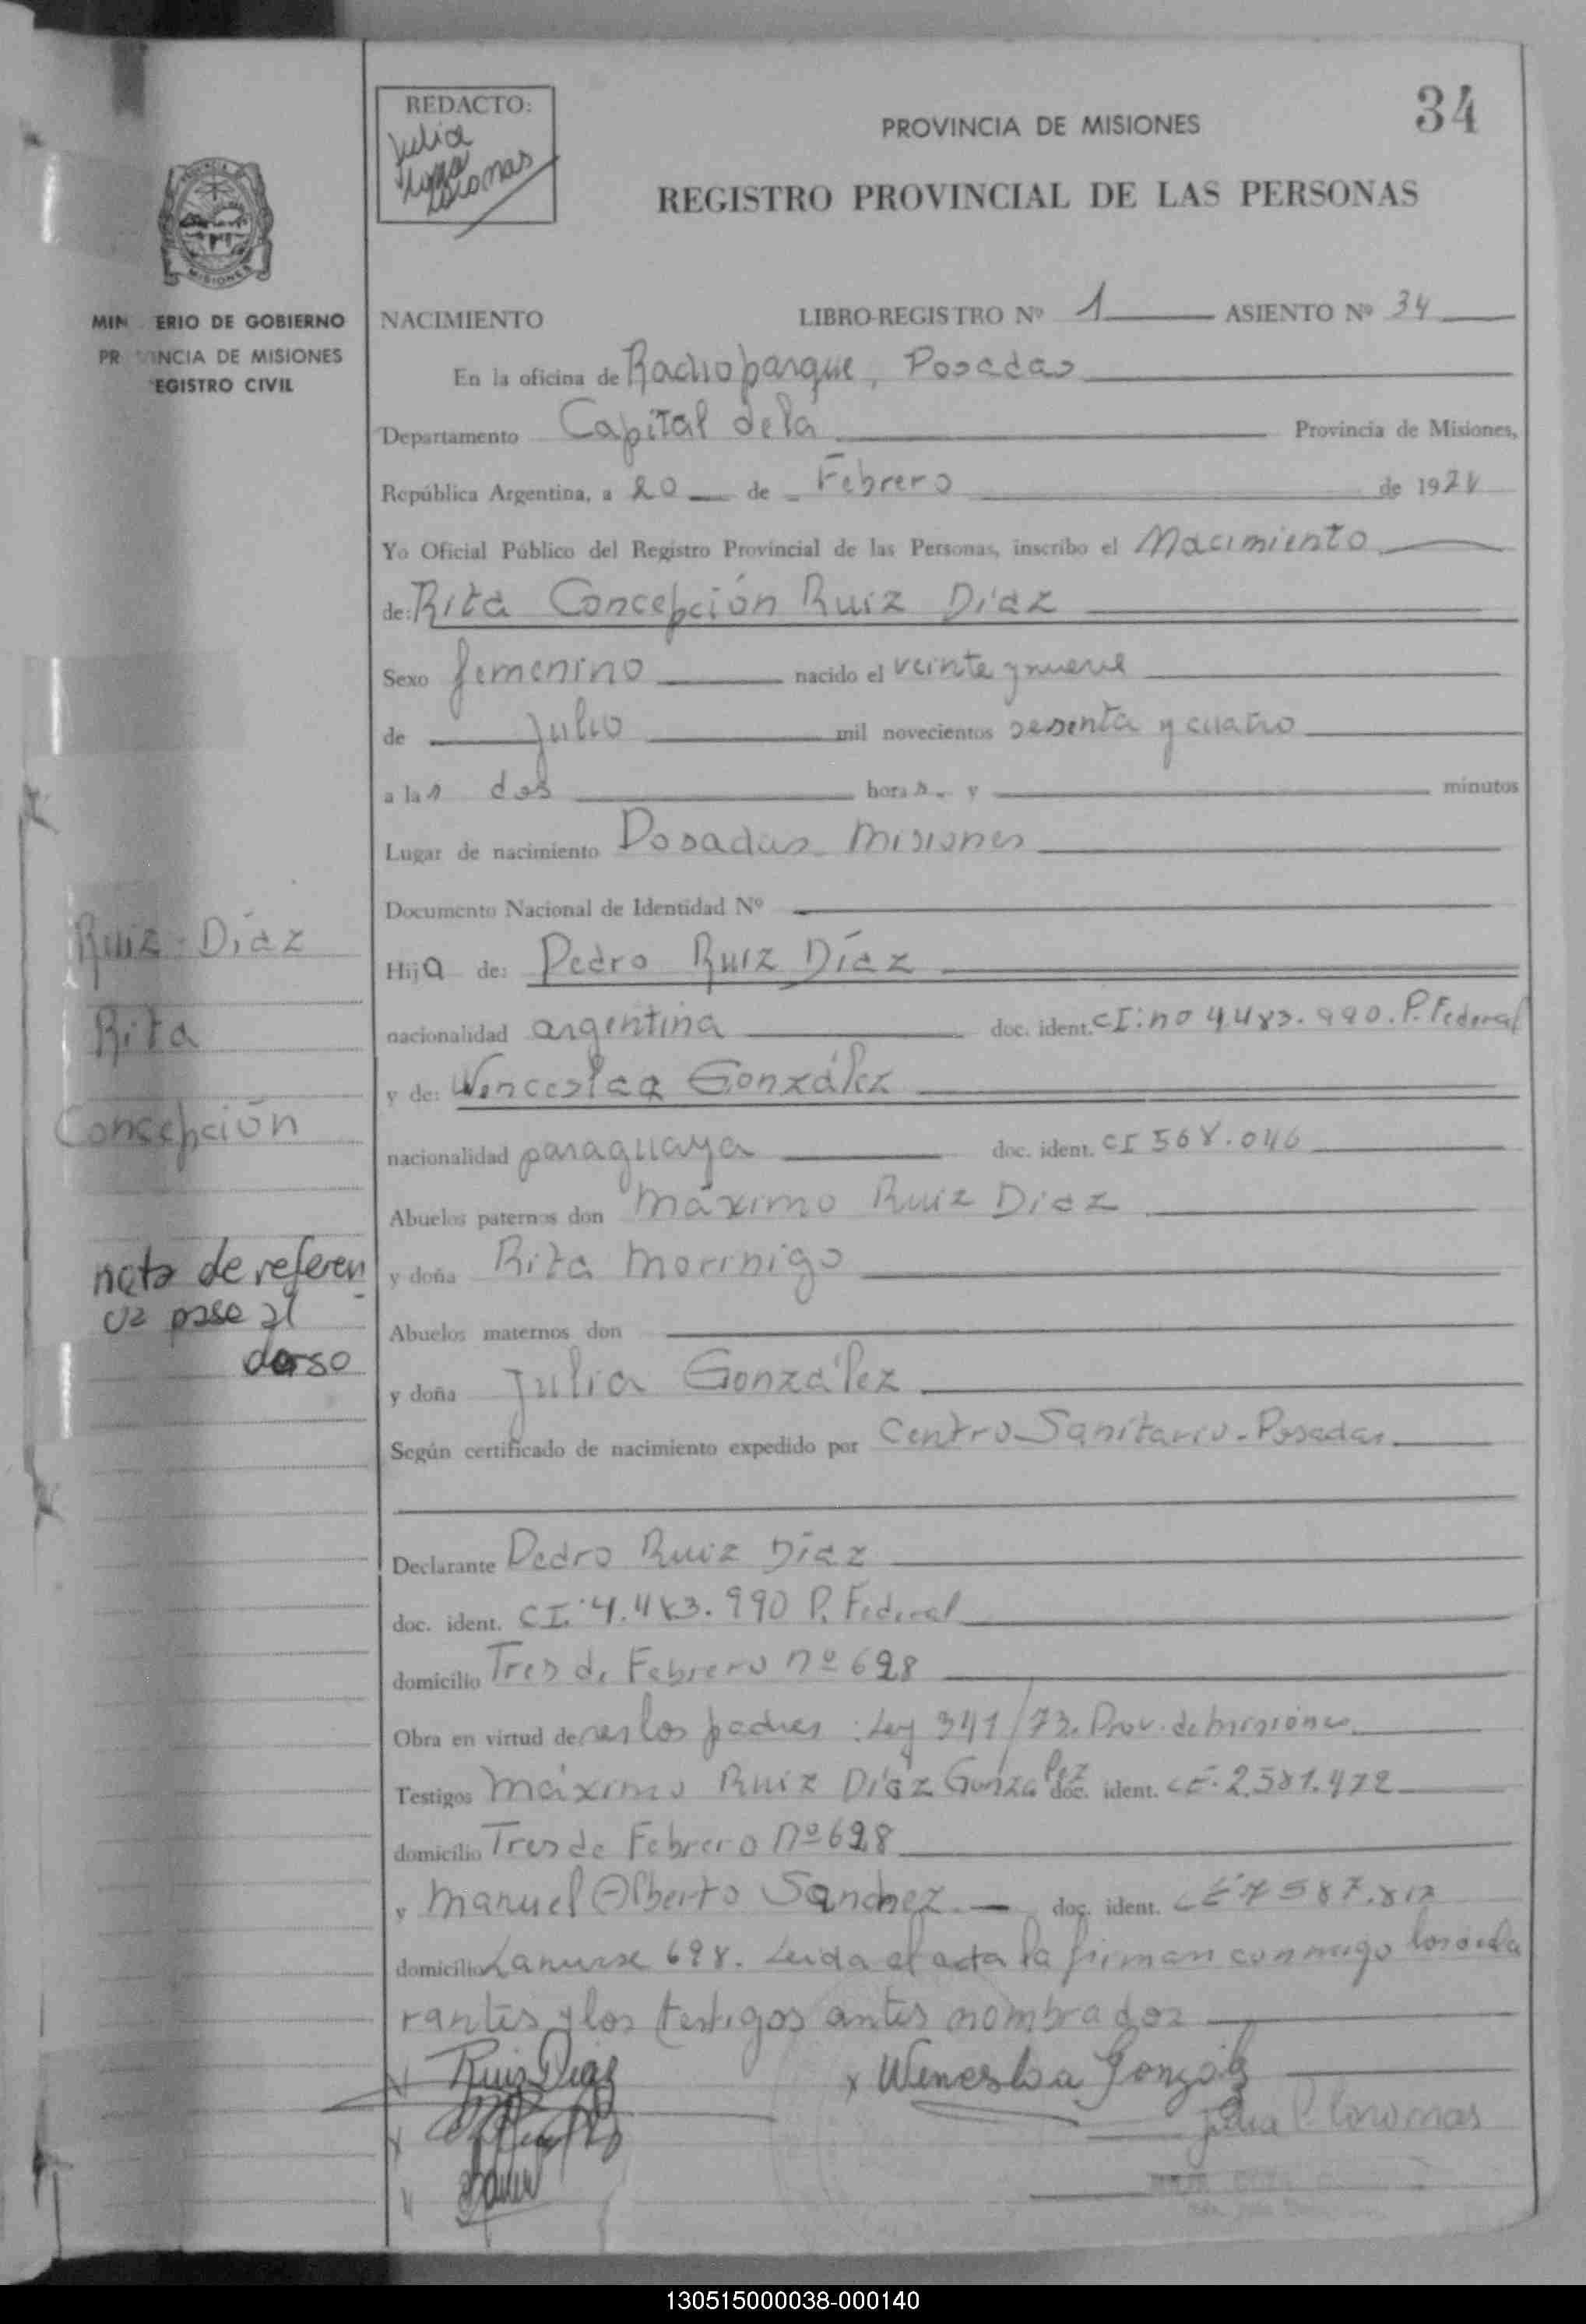 34
REDACTO:
Julia
Coromas
PROVINCIA DE MISIONES
REGISTRO PROVINCIAL DE LAS PERSONAS
PROVINCIA
MISIONES
MIN ERIO DE GOBIERNO
PR VINCIA DE MISIONES
EGISTRO CIVIL
NACIMIENTO LIBRO-REGISTRO Nº 1 ASIENTO Nº 34
En la oficina de Rachoparque, Posadas
Departamento Capital de la Provincia de Misiones,
República Argentina, a 20 de Febrero de 19
Yo Oficial Público del Registro Provincial de las Personas, inscribo el Nacimiento
de: Rita Concepción Ruiz Díaz
Sexo femenino nacido el veinte y nueve
de Julio mil novecientos sesenta y cuatro
a las dos horas y minutos
Lugar de nacimiento Posadas Misiones
Documento Nacional de Identidad Nº
Hija de: Pedro Ruiz Díaz
nacionalidad argentina doc. ident. CI: nº 4.483.990. P. Federal
y de: Wenceslaa González
nacionalidad paraguaya doc. ident. CI 568.046
Abuelos paternos don Máximo Ruiz Diaz
y doña Rita Morinigo
Abuelos maternos don
y doña Julia González
Según certificado de nacimiento expedido por Centro Sanitario - Posadas
Declarante Pedro Ruiz Díaz
doc. ident. CI. 4.483.990 P. Federal
domicilio Tres de Febrero nº 698
Obra en virtud de ser los padres : Ley 341/73. Prov. de Misiones
Testigos Máximo Ruiz Díaz González doc. ident. CE. 2.581.472
domicilio Tres de Febrero nº 698
y Manuel Alberto Sanchez doc. ident. 7587.812
domicilio Lanusse 698. Leida el acta la firman conmigo los decla
rantes y los testigos antes nombrados
Ruiz Diaz
x Wenesloa Gonzalez
Julia Coromas
Ruiz Díaz
Rita
Concepción
nota de referen
cia pase al
dorso
130515000038-000140